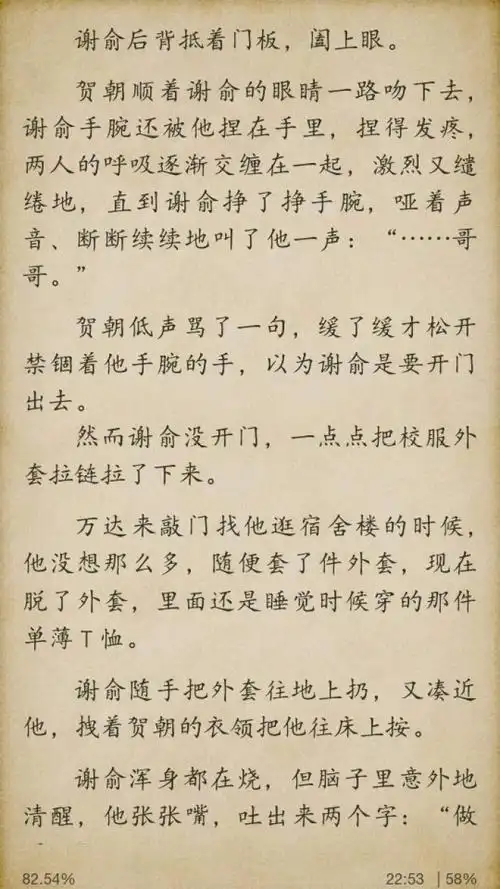 谢俞后背抵着门板，阖上眼。
贺朝顺着谢俞的眼睛一路吻下去，
谢俞手腕还被他捏在手里，捏得发疼，
两人的呼吸逐渐交缠在一起，激烈又缱
绻地，直到谢俞挣了挣手腕，哑着声
音、断断续续地叫了他一声：“……哥
哥。”
贺朝低声骂了一句，缓了缓才松开
禁锢着他手腕的手，以为谢俞是要开门
出去。
然而谢俞没开门，一点点把校服外
套拉链拉了下来。
万达来敲门找他逛宿舍楼的时候，
他没想那么多，随便套了件外套，现在
脱了外套，里面还是睡觉时候穿的那件
单薄T恤。
谢俞随手把外套往地上扔，又凑近
他，拽着贺朝的衣领把他往床上按。
谢俞浑身都在烧，但脑子里意外地
清醒，他张张嘴，吐出来两个字：“做
82.54% 22:53 | 58%